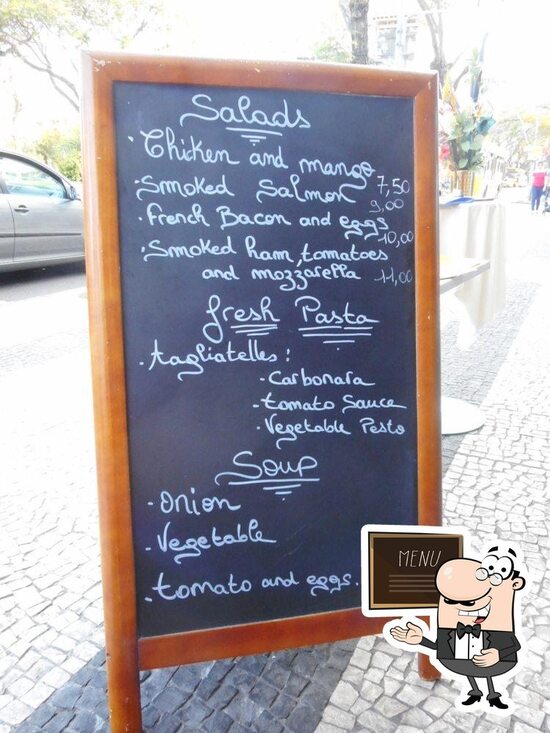 Salads
· Chicken and mango
7,50
· Smoked Salmon
9,00
· French Bacon and eggs
10,00
· Smoked ham, tomatoes
and mozzarella 11,00
fresh Pasta
· tagliatelles :
· Carbonara
· tomato Sauce
· Vegetable Pesto
Soup
· Onion
· Vegetable
· tomato and eggs.
MENU